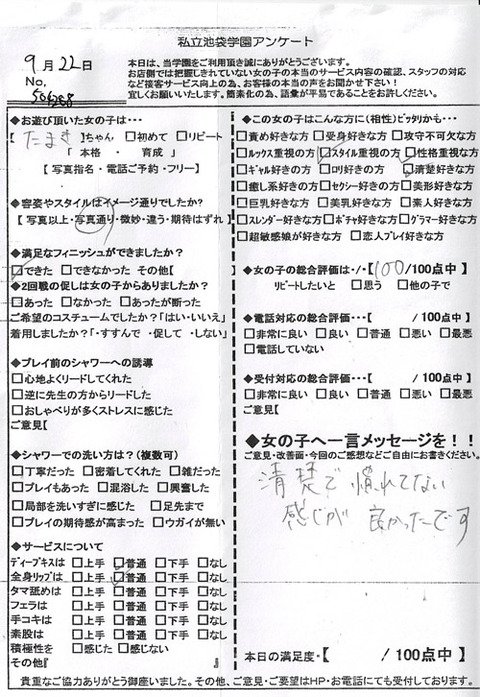 私立池袋学園アンケート
9月22日
No.
506288
本日は、当学園をご利用頂き誠にありがとうございます。
お店側では把握しきれていない女の子の本当のサービス内容の確認、スタッフの対応
など接客サービス向上の為、お客様の本当の声をお聞かせ下さい!
宜しくお願いいたします。簡素化の為、語彙が平易であることをお許しください。
◆お遊び頂いた女の子は…
【たまき】ちゃん □初めて □リピート
「 本格 ・ 育成 」
【写真指名・電話ご予約・フリー】
◆容姿やスタイルはイメージ通りでしたか?
【 写真以上・写真通り・微妙・違う・期待はずれ 】
◆満足なフィニッシュができましたか?
□できた □できなかった その他【
◆2回戦の促しは女の子からありましたか?
□あった □なかった □あったが断った
ご希望のコスチュームでしたか?「はい・いいえ」
着用しましたか?「・すすんで ・促して ・しない」
◆プレイ前のシャワーへの誘導
□心地よくリードしてくれた
□逆に先生の方からリードした
□おしゃべりが多くストレスに感じた
ご意見【
◆シャワーでの洗い方は?(複数可)
□丁寧だった □密着してくれた □雑だった
□プレイもあった □混浴した □興奮した
□局部を洗いすぎに感じた □足先まで
□プレイの期待感が高まった □ウガイが無い
◆サービスについて
ディープキスは □上手 □普通 □下手 □なし
全身リップは □上手 □普通 □下手 □なし
タマ舐めは □上手 □普通 □下手 □なし
フェラは □上手 □普通 □下手 □なし
手コキは □上手 □普通 □下手 □なし
素股は □上手 □普通 □下手 □なし
積極性を □感じた □感じない
その他『 』
◆この女の子はこんな方に(相性)ピッタリかも…
□責め好きな方 □受身好きな方 □攻守不可欠な方
□ルックス重視の方 □スタイル重視の方 □性格重視な方
□ギャル好きの方 □ロリ好きの方 □清楚好きな方
□癒し系好きの方 □セクシー好きの方 □美形好きな方
□巨乳好きな方 □美乳好きな方 □素人好きな方
□スレンダー好きな方 □ポチャ好きな方 □グラマー好きな方
□超敏感娘が好きな方 □恋人プレイ好きな方
◆女の子の総合評価は・/・【100/100点中 】
リピートしたいと □思う □他の子で
◆電話対応の総合評価…【 /100点中】
□非常に良い □良い □普通 □悪い □最悪
□電話していない
◆受付対応の総合評価…【 /100点中 】
□非常に良い □良い □普通 □悪い □最悪
ご意見【
◆女の子へ一言メッセージを!!
ご意見・改善面・今回のご感想などご自由にお書きください。
清楚で慣れてない
感じが良かったです
本日の満足度・【 /100点中】
貴重なご協力ありがとう御座いました。その他、ご意見・ご要望はHP・お電話にても受付しております。